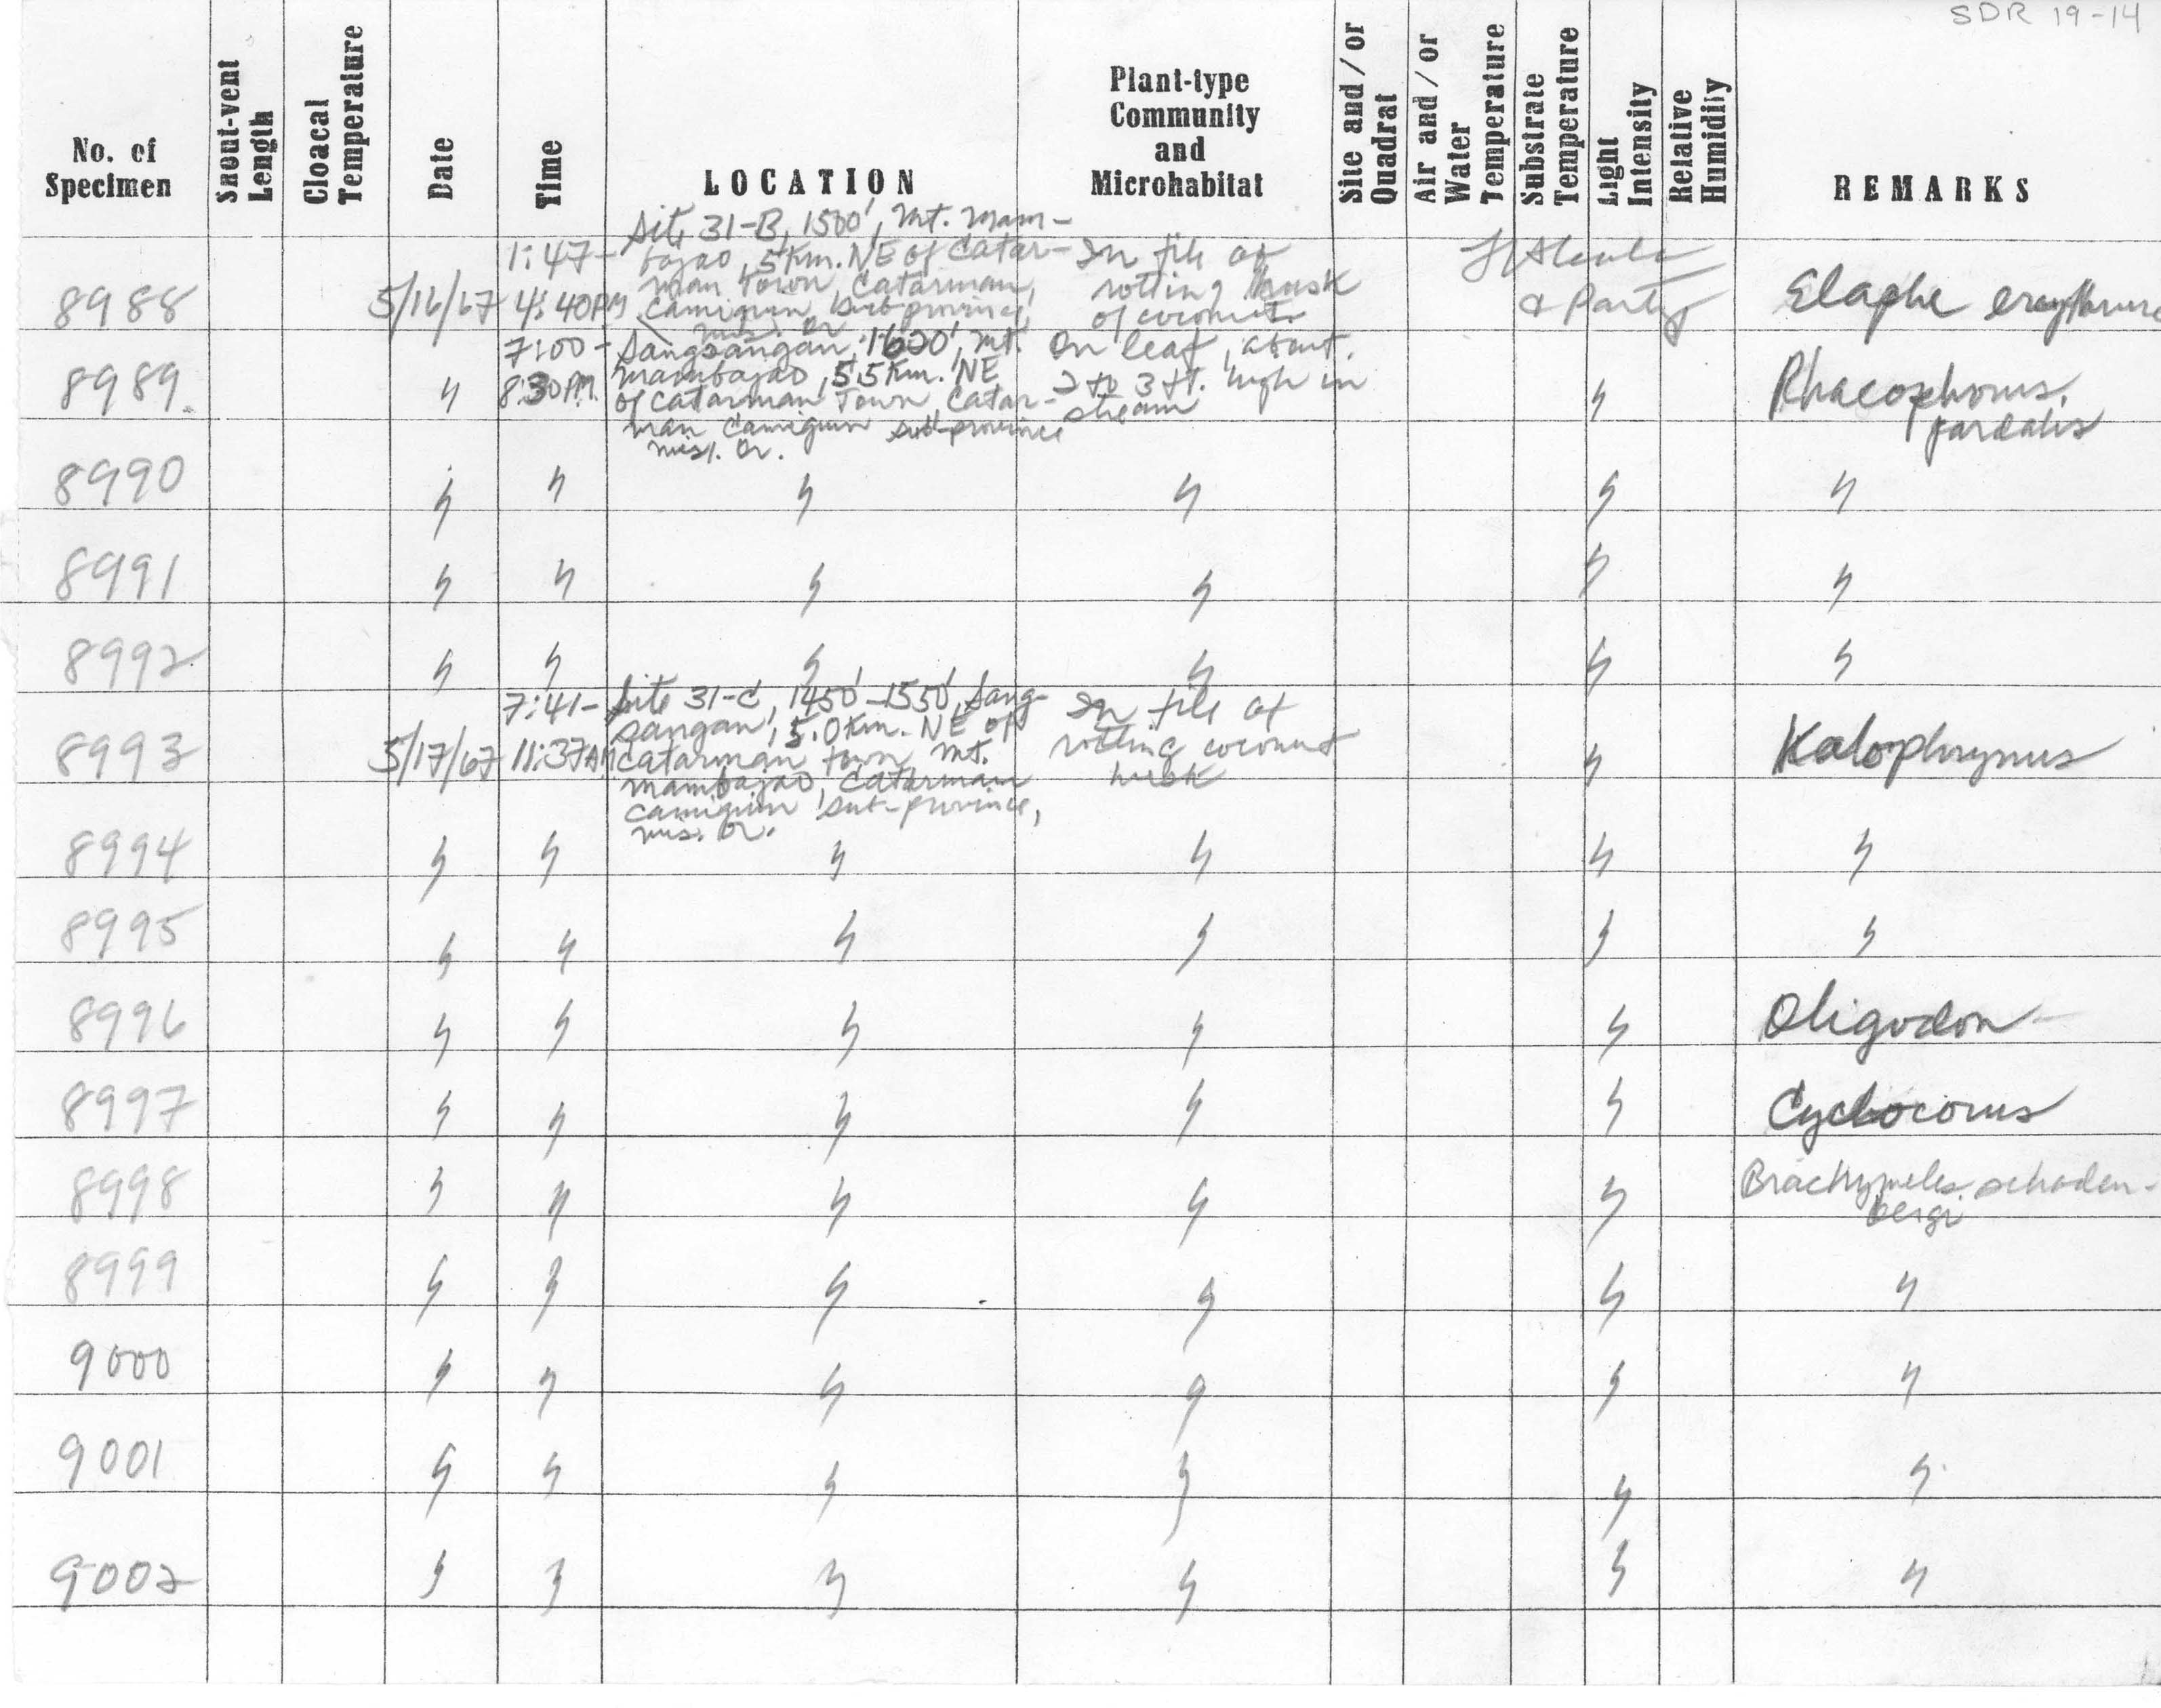 SDR 19-14
No. of Specimen
Snout-vent Length
Cloacal Temperature
Date
Time
LOCATION
Plant-type Community and Microhabitat
Site and/or Quadrat
Air and/or Water Temperature
Substrate Temperature
Light Intensity
Relative Humidity
REMARKS
8988
5/16/67
1:47-
4:40PM
Site 31-B, 1500', Mt. Mam-
bajao, 5 Km. NE of Catar-
man Town, Catarman,
Camiguin Sub-province,
Mis. Or.
In pile of
rotting husk
of coconuts
& Party
Elaphe erythrura
8989
"
7:00-
8:30PM.
Sangsangan, 1600', Mt.
Mambajao, 5.5 Km. NE
of Catarman Town, Catar-
man Camiguin sub-province
Mis. Or.
On leaf, about
2 to 3 ft. high in
stream
"
Rhacophorus
pardalis
8990 " " " " " "
8991 " " " " " "
8992 " " " " " "
8993
5/17/67
7:41-
11:37AM
Site 31-C, 1450'-1550', Sang-
sangan, 5.0 Km. NE of
Catarman Town, Mt.
Mambajao, Catarman
Camiguin Sub-province,
Mis. Or.
In pile of
rotting coconut
husk
"
Kalophrynus
8994 " " " " " "
8995 " " " " " "
8996 " " " " " Oligodon
8997 " " " " " Cyclocorus
8998 " " " " " Brachymeles schaden-
bergi
8999 " " " " " "
9000 " " " " " "
9001 " " " " " "
9002 " " " " " "